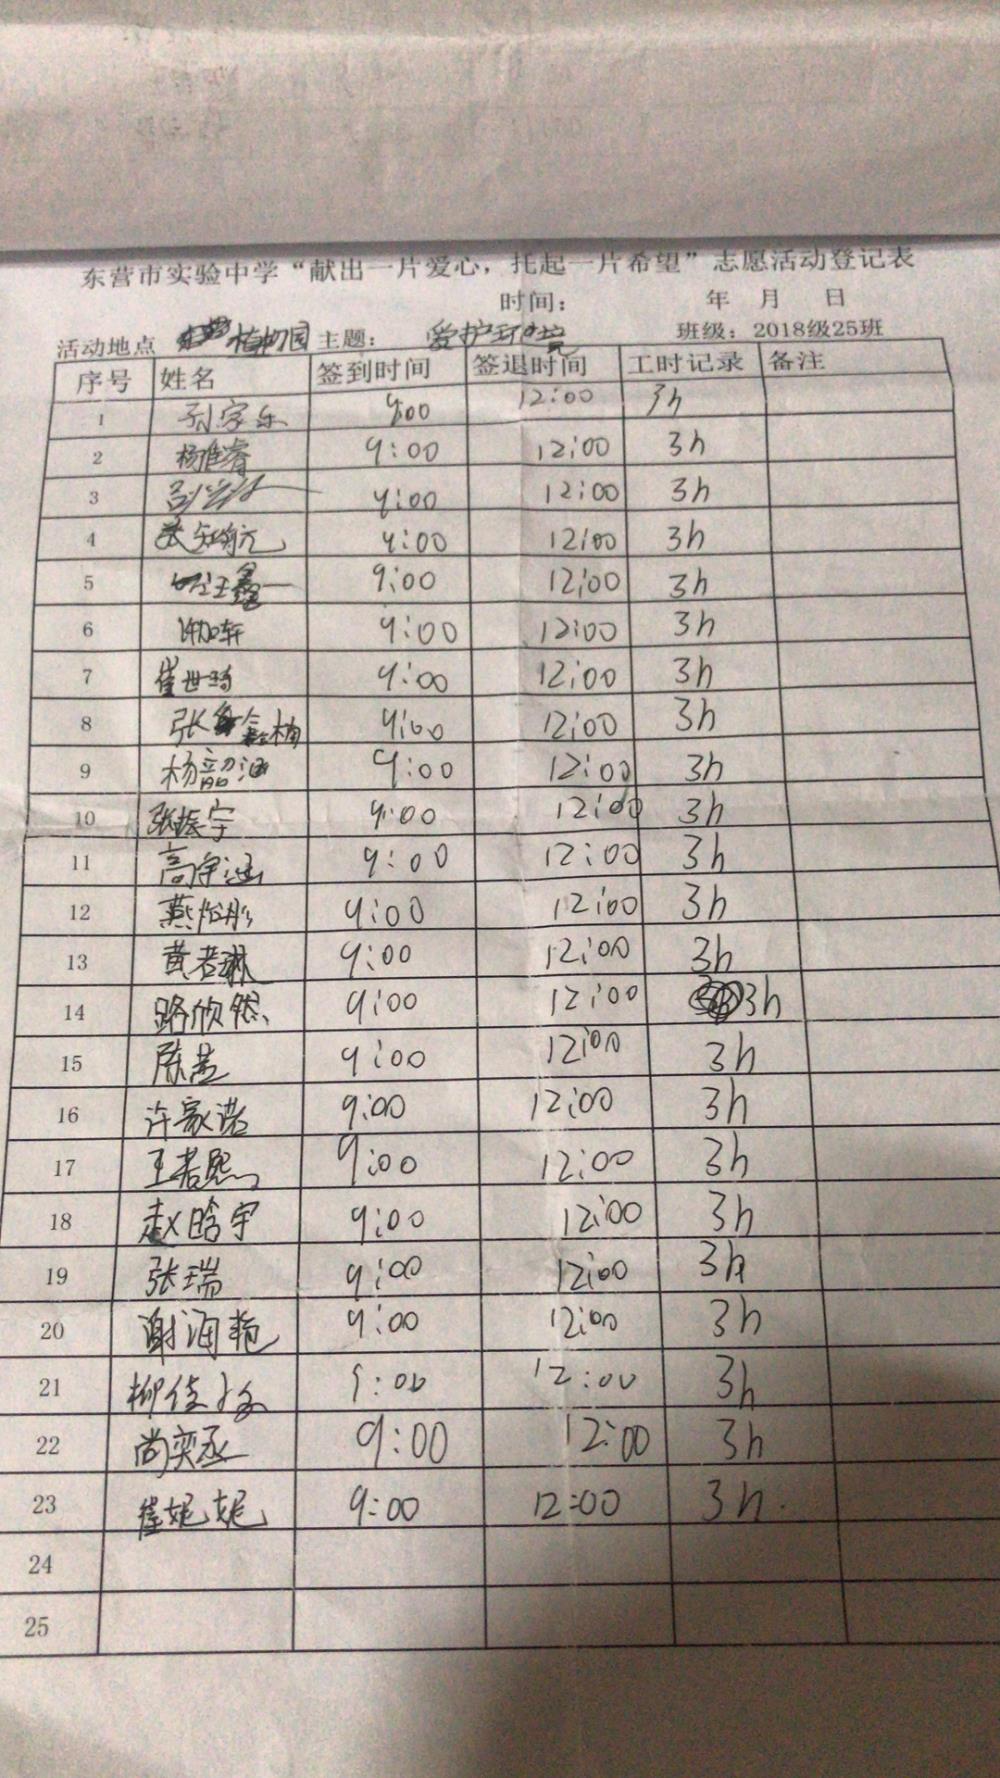 东营市实验中学“献出一片爱心，托起一片希望”志愿活动登记表
时间： 年 月 日
活动地点 植物园 主题： 爱护环境 班级：2018级25班
序号 姓名 签到时间 签退时间 工时记录 备注
1 9:00 12:00 3h
2 杨惟睿 9:00 12:00 3h
3 9:00 12:00 3h
4 9:00 12:00 3h
5 9:00 12:00 3h
6 许加轩 9:00 12:00 3h
7 崔世琦 9:00 12:00 3h
8 张鑫楠 9:00 12:00 3h
9 杨韶涵 9:00 12:00 3h
10 张振宁 9:00 12:00 3h
11 高宇涵 9:00 12:00 3h
12 燕怡彤 9:00 12:00 3h
13 黄若琳 9:00 12:00 3h
14 路欣然 9:00 12:00 3h
15 9:00 12:00 3h
16 许家诺 9:00 12:00 3h
17 王若熙 9:00 12:00 3h
18 赵晗宇 9:00 12:00 3h
19 张瑞 9:00 12:00 3h
20 谢润艳 9:00 12:00 3h
21 9:00 12:00 3h
22 尚奕丞 9:00 12:00 3h
23 崔妮妮 9:00 12:00 3h
24
25